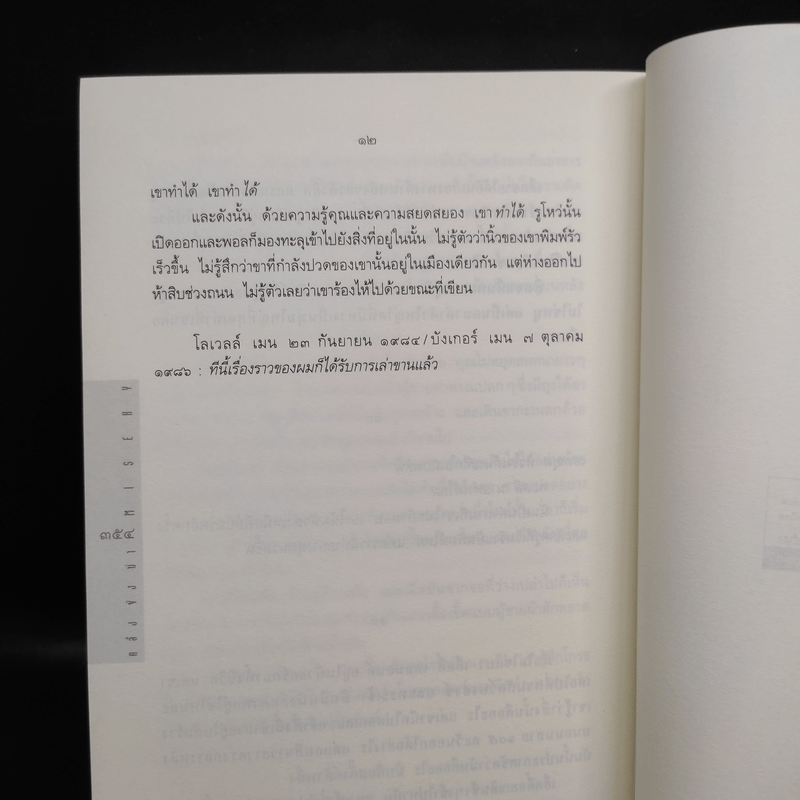 ๑๒
เขาทำได้ เขาทำ ได้
และดังนั้น ด้วยความรู้คุณและความสยดสยอง เขา ทำได้ รูโหว่นั้น
เปิดออกและพอลก็มองทะลุเข้าไปยังสิ่งที่อยู่ในนั้น ไม่รู้ตัวว่านิ้วของเขาพิมพ์รัว
เร็วขึ้น ไม่รู้สึกว่าขาที่กำลังปวดของเขานั้นอยู่ในเมืองเดียวกัน แต่ห่างออกไป
ห้าสิบช่วงถนน ไม่รู้ตัวเลยว่าเขาร้องไห้ไปด้วยขณะที่เขียน
โลเวลล์ เมน ๒๓ กันยายน ๑๙๘๔/บังเกอร์ เมน ๗ ตุลาคม
๑๙๘๖ : ทีนี้เรื่องราวของผมก็ได้รับการเล่าขานแล้ว
๓๕๔
MISERY